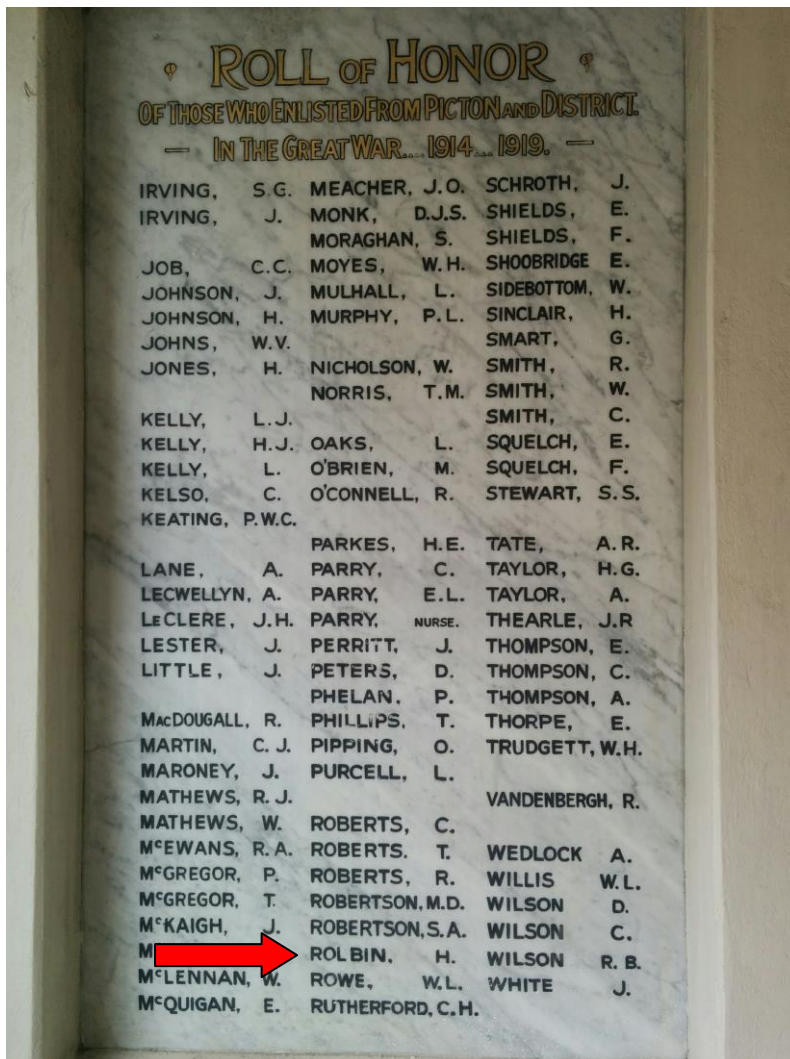 ROLL OF HONOR
OF THOSE WHO ENLISTED FROM PICTON AND DISTRICT.
— IN THE GREAT WAR... 1914... 1919. —
IRVING, S.G.
IRVING, J.
JOB, C.C.
JOHNSON, J.
JOHNSON, H.
JOHNS, W.V.
JONES, H.
KELLY, L.J.
KELLY, H.J.
KELLY, L.
KELSO, C.
KEATING, P.W.C.
LANE, A.
LECWELLYN, A.
LeCLERE, J.H.
LESTER, J.
LITTLE, J.
MacDOUGALL, R.
MARTIN, C.J.
MARONEY, J.
MATHEWS, R.J.
MATHEWS, W.
McEWANS, R.A.
McGREGOR, P.
McGREGOR, T.
McKAIGH, J.
McLENNAN, W.
McQUIGAN, E.
MEACHER, J.O.
MONK, D.J.S.
MORAGHAN, S.
MOYES, W.H.
MULHALL, L.
MURPHY, P.L.
NICHOLSON, W.
NORRIS, T.M.
OAKS, L.
O'BRIEN, M.
O'CONNELL, R.
PARKES, H.E.
PARRY, C.
PARRY, E.L.
PARRY, NURSE.
PERRITT, J.
PETERS, D.
PHELAN. P.
PHILLIPS, T.
PIPPING, O.
PURCELL, L.
ROBERTS, C.
ROBERTS. T.
ROBERTS, R.
ROBERTSON, M.D.
ROBERTSON, S.A.
ROLBIN, H.
ROWE, W.L.
RUTHERFORD, C.H.
SCHROTH, J.
SHIELDS, E.
SHIELDS, F.
SHOOBRIDGE E.
SIDEBOTTOM, W.
SINCLAIR, H.
SMART, G.
SMITH, R.
SMITH, W.
SMITH, C.
SQUELCH, E.
SQUELCH, F.
STEWART, S.S.
TATE, A.R.
TAYLOR, H.G.
TAYLOR, A.
THEARLE, J.R
THOMPSON, E.
THOMPSON, C.
THOMPSON, A.
THORPE, E.
TRUDGETT, W.H.
VANDENBERGH, R.
WEDLOCK A.
WILLIS W.L.
WILSON D.
WILSON C.
WILSON R.B.
WHITE J.